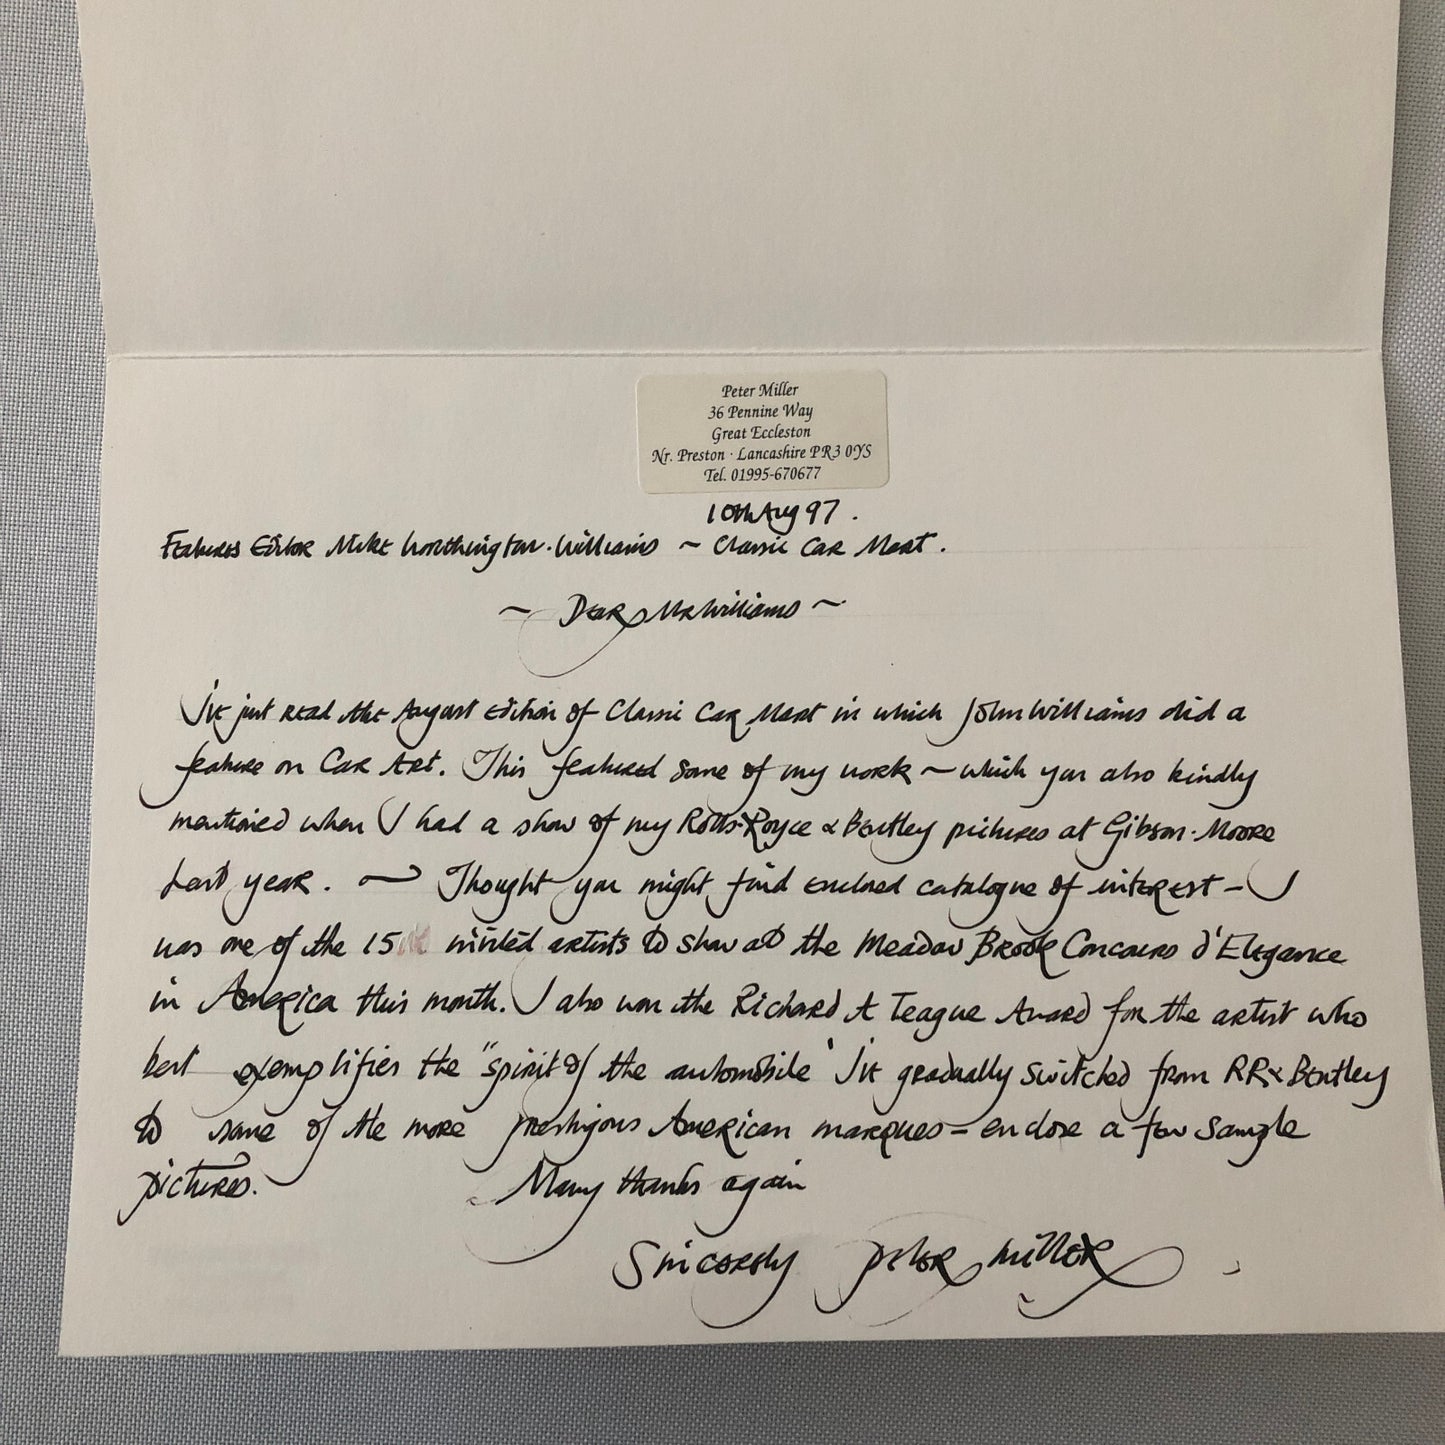 Peter Miller
36 Pennine Way
Great Eccleston
Nr. Preston · Lancashire PR3 0YS
Tel. 01995-670677
10th Aug 97.
Features Editor Mike Worthington-Williams ~ Classic Car Mart.
~ Dear Mr Williams ~
I've just read the August edition of Classic Car Mart in which John Williams did a
feature on Car Art. This featured some of my work ~ which you also kindly
mentioned when I had a show of my Rolls-Royce & Bentley pictures at Gibson-Moore
last year. ~ Thought you might find enclosed catalogue of interest - I
was one of the 15 invited artists to show at the Meadow Brook Concours d'Elegance
in America this month. I also won the Richard A Teague Award for the artist who
best exemplifies the "spirit of the automobile" I've gradually switched from RR & Bentley
to some of the more prestigous American marques - enclose a few sample
pictures. Many thanks again
Sincerely Peter Miller